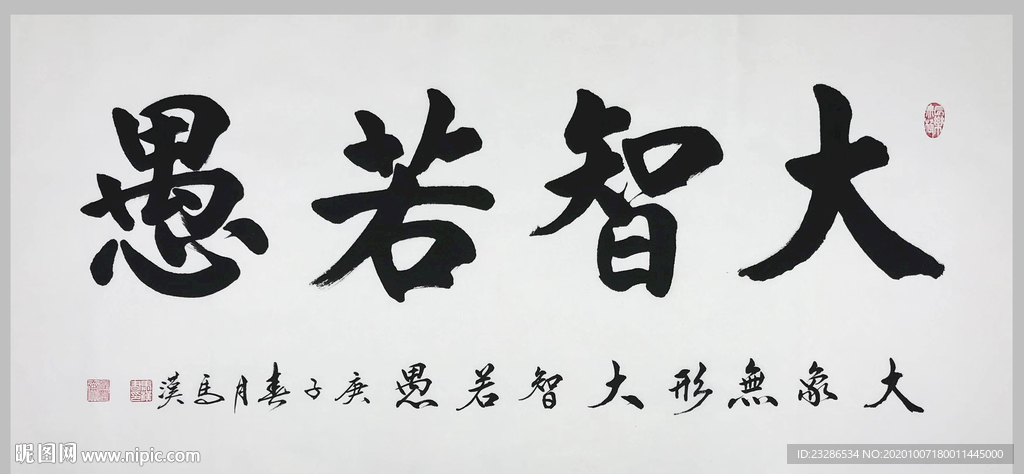 大智若愚
大象無形大智若愚庚子春月馬漢
昵图网 www.nipic.com
ID:23286534 NO:20201007180011445000